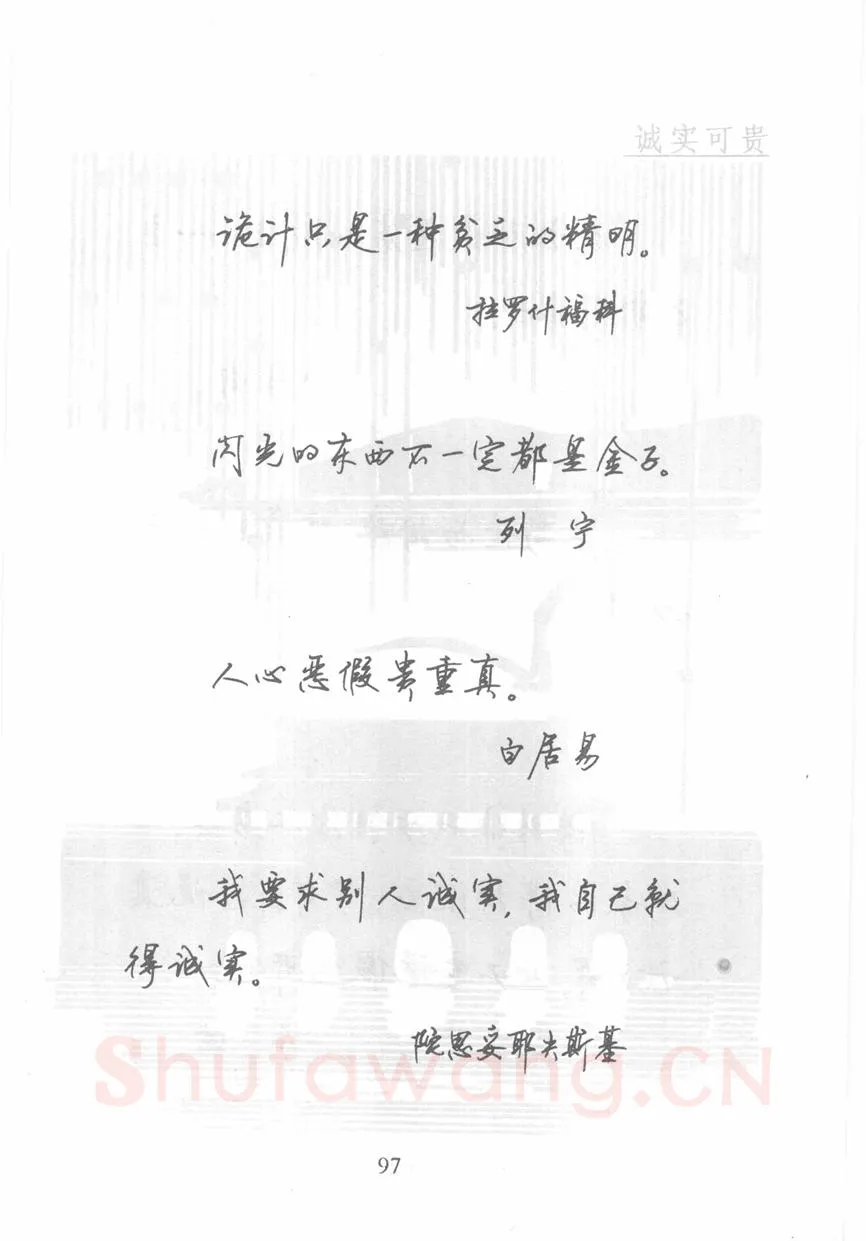 诚实可贵
诡计只是一种贫乏的精明。
拉罗什福科
闪光的东西不一定都是金子。
列宁
人心恶假贵重真。
白居易
我要求别人诚实，我自己就
得诚实。
陀思妥耶夫斯基
Shufawang.CN
97